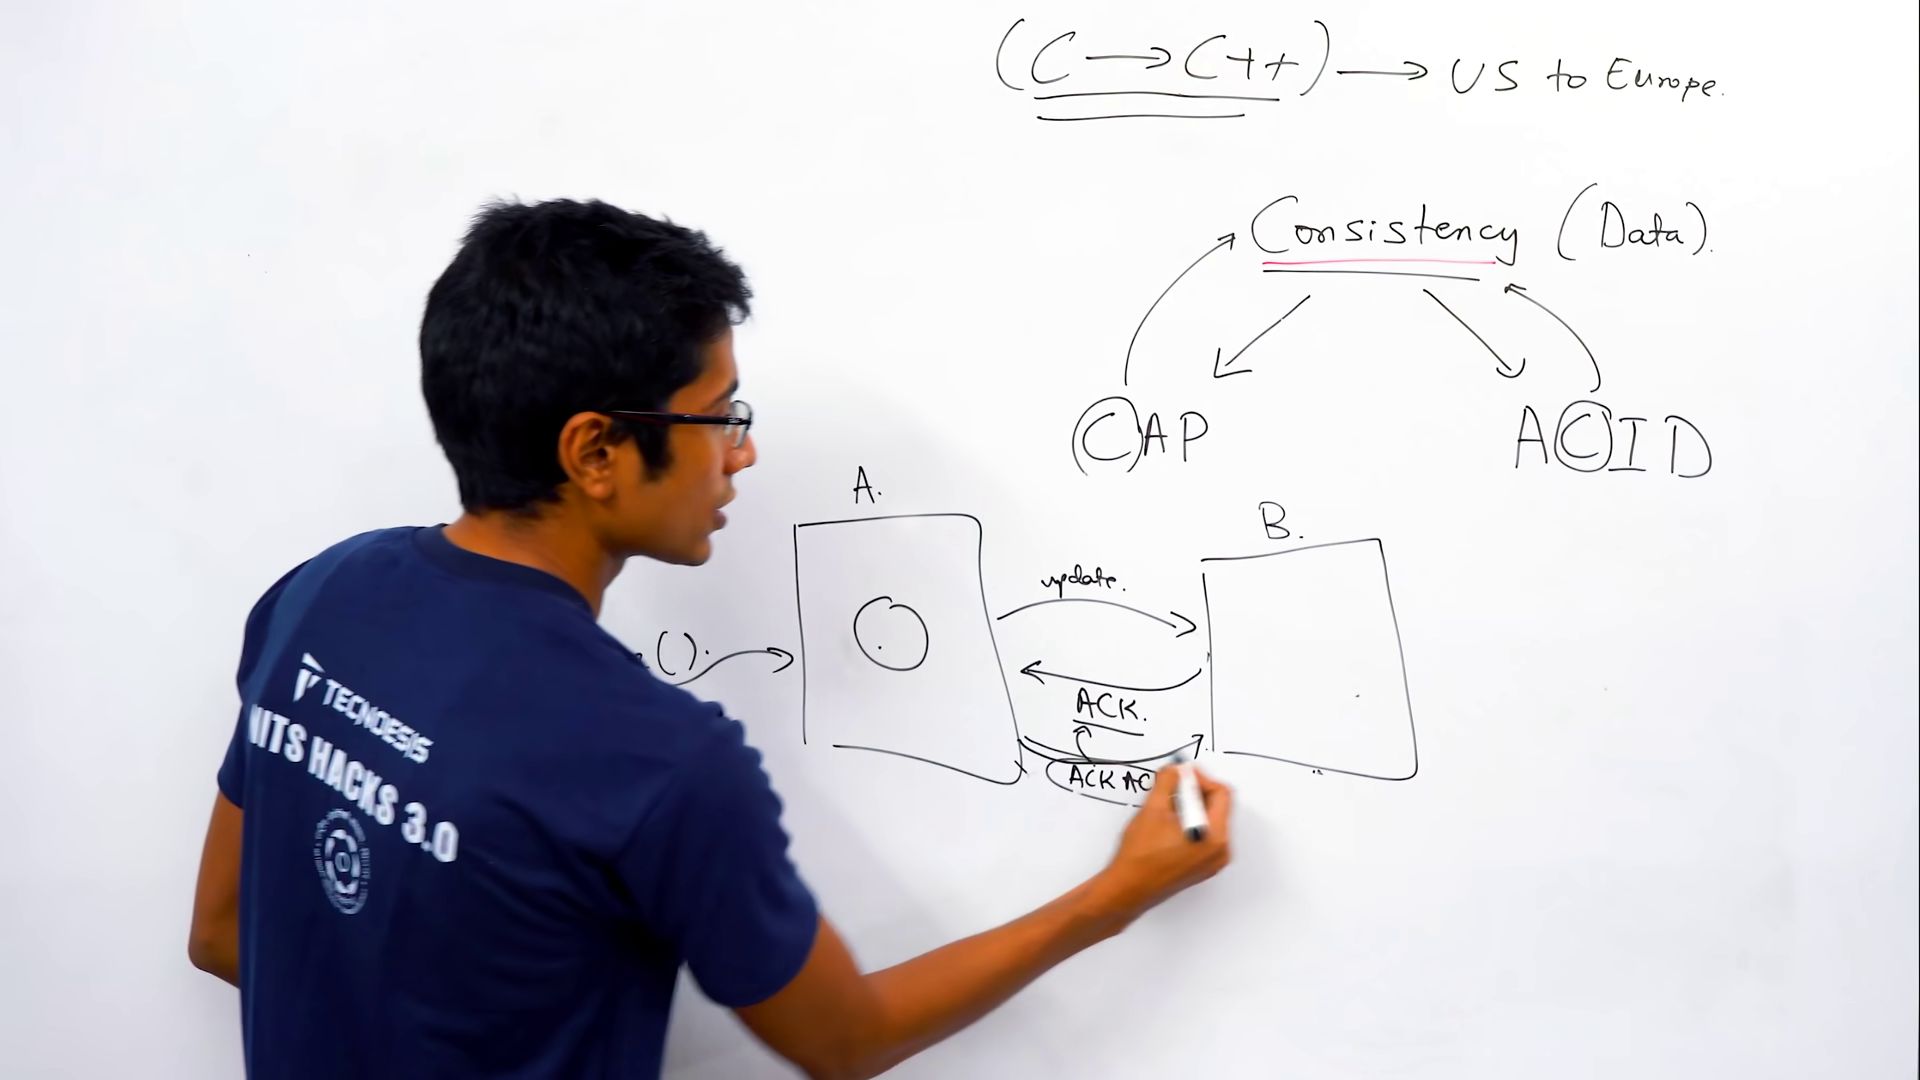 (C → C++) → US to Europe.
Consistency (Data).
CAP
ACID
A.
B.
update.
ACK.
ACK AC
TECNOESIS
NITS HACKS 3.0